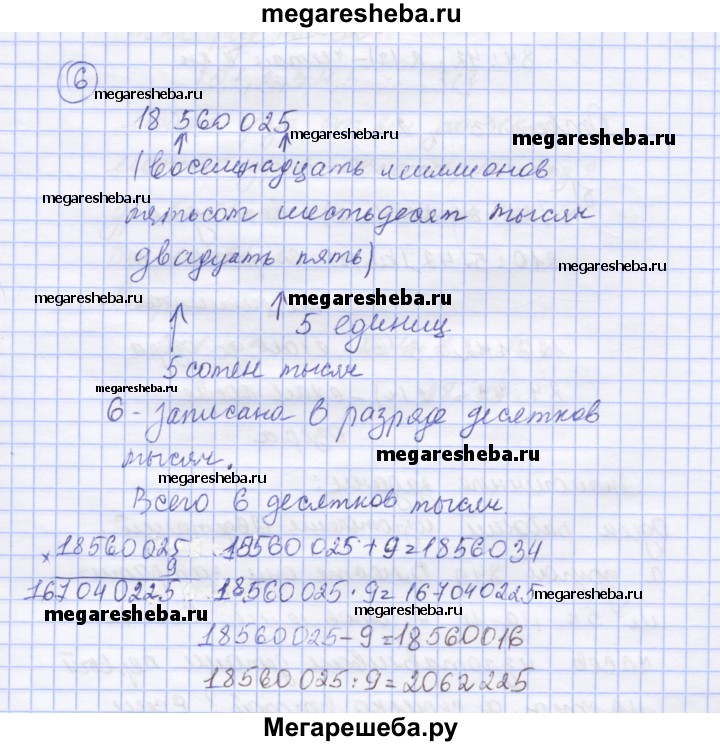 megaresheba.ru
6
megaresheba.ru
18 560 025
megaresheba.ru
megaresheba.ru
(восемнадцать миллионов
megaresheba.ru
пятьсот шестьдесят тысяч
megaresheba.ru
двадцать пять)
megaresheba.ru
megaresheba.ru
megaresheba.ru
5 единиц
5 сотен тысяч
megaresheba.ru
6 - записана в разряде десятков
тысяч.
megaresheba.ru
megaresheba.ru
Всего 6 десятков тысяч.
× 18560025
9
167040225
18560 025 + 9 = 1856034
18560025 · 9 = 167040225
megaresheba.ru
megaresheba.ru
megaresheba.ru
18560025 - 9 = 18560016
18560025 : 9 = 2062225
Мегарешеба.ру